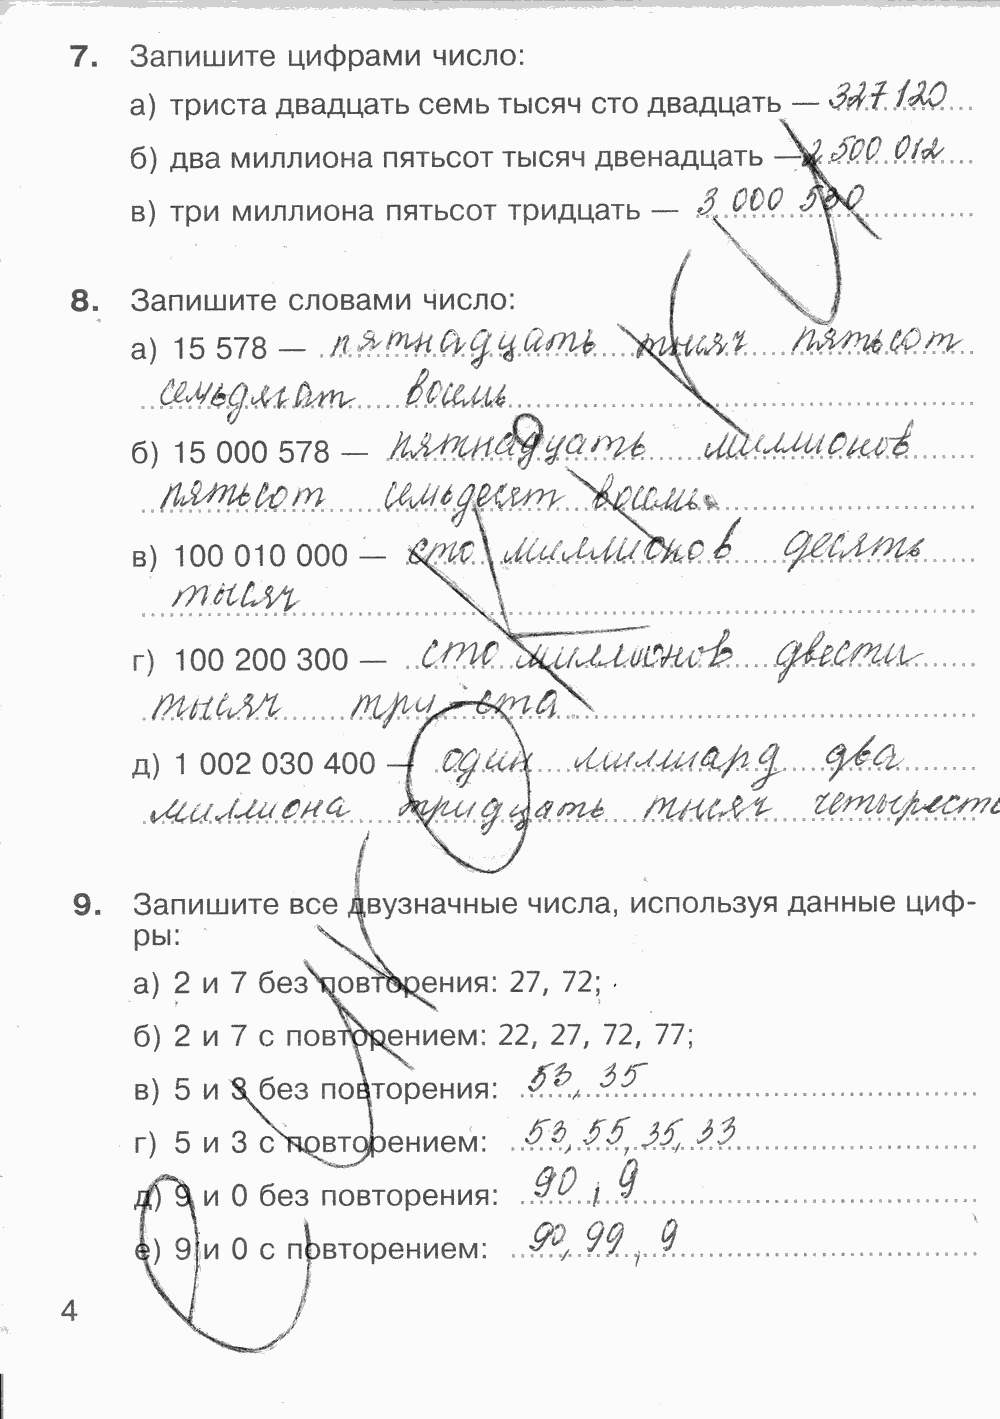 7. Запишите цифрами число:
а) триста двадцать семь тысяч сто двадцать — 327 120
б) два миллиона пятьсот тысяч двенадцать — 2 500 012
в) три миллиона пятьсот тридцать — 3 000 530
8. Запишите словами число:
а) 15 578 — пятнадцать тысяч пятьсот
семьдясат восемь
б) 15 000 578 — пятнадцать миллионов
пятьсот семьдесят восемь.
в) 100 010 000 — сто миллионов десять
тысяч
г) 100 200 300 — сто миллионов двести
тысяч три ста
д) 1 002 030 400 — один миллиард два
миллиона тридцать тысяч четыреста
9. Запишите все двузначные числа, используя данные циф-
ры:
а) 2 и 7 без повторения: 27, 72;
б) 2 и 7 с повторением: 22, 27, 72, 77;
в) 5 и 3 без повторения: 53, 35
г) 5 и 3 с повторением: 53, 55, 35, 33
д) 9 и 0 без повторения: 90, 9
е) 9 и 0 с повторением: 90, 99, 9
4